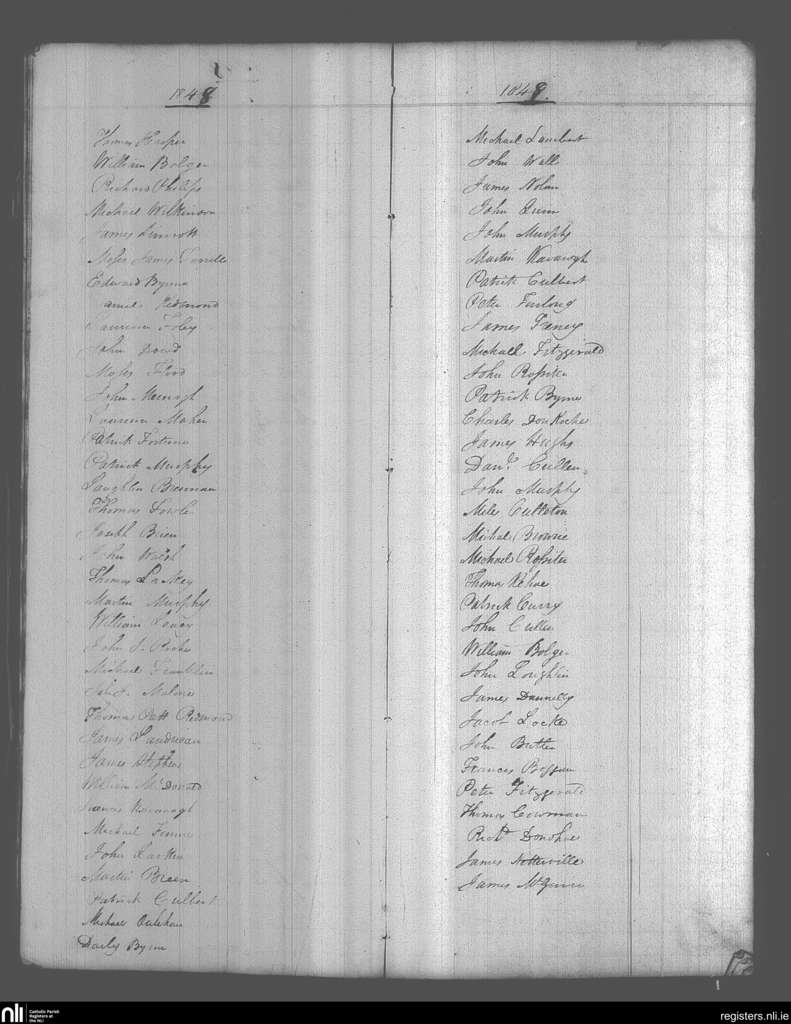 1848
Thomas Harper
William Bolger
Richard Philips
Michael Wilkinson
James Sinnott
Moses James
Edward Byrne
Redmond
Laurence Foley
John Dowd
Moses Flood
John
Laurence Maher
Patrick Fortune
Patrick Murphy
Laughlin Brennan
Thomas Fowler
Joseph Brien
John Walsh
Thomas Laskey
Martin Murphy
William
John S. Roche
Michael Franklin
Malone
Thomas Redmond
James
James Stephens
William McDonald
Francis Kavanagh
Michael
John Larkin
Martin Breen
Patrick Culbert
Michael
Darby Byrne
1848.
Michael Lambert
John Wall
James Nolan
John Quinn
John Murphy
Martin Kavanagh
Patrick Culbert
Peter Furlong
James
Michael Fitzgerald
John Rossiter
Patrick Byrne
Charles Don Roches
James Hughs
Danl. Cullen
John Murphy
Miles Culleton
Michael Browne
Michael Rossiter
Thomas Kehoe
Patrick Curry
John Cullen
William Bolger
John Loughlin
James Dannelly
Jacob Locke
John Butler
Francis
Peter Fitzgerald
Thomas Cowman
Richd. Donohoe
James Netterville
James McGuire
nli
Catholic Parish
Registers at
the NLI
registers.nli.ie